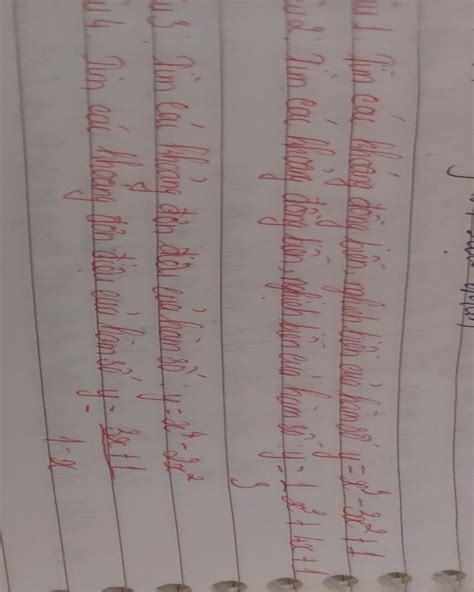 1. Tìm các khoảng đồng biến, nghịch biến của hàm số y = x³ - 3x² + 1
2. Tìm các khoảng đồng biến, nghịch biến của hàm số y = 1/3 x³ + 4x + 1
3. Tìm các khoảng đơn điệu của hàm số y = x⁴ - 2x²
4. Tìm các khoảng đơn điệu của hàm số y = 3x+1 / 1-x